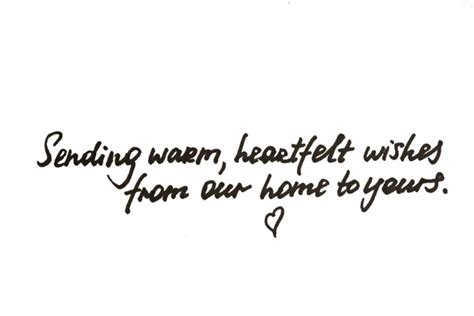 Sending warm, heartfelt wishes
from our home to yours.